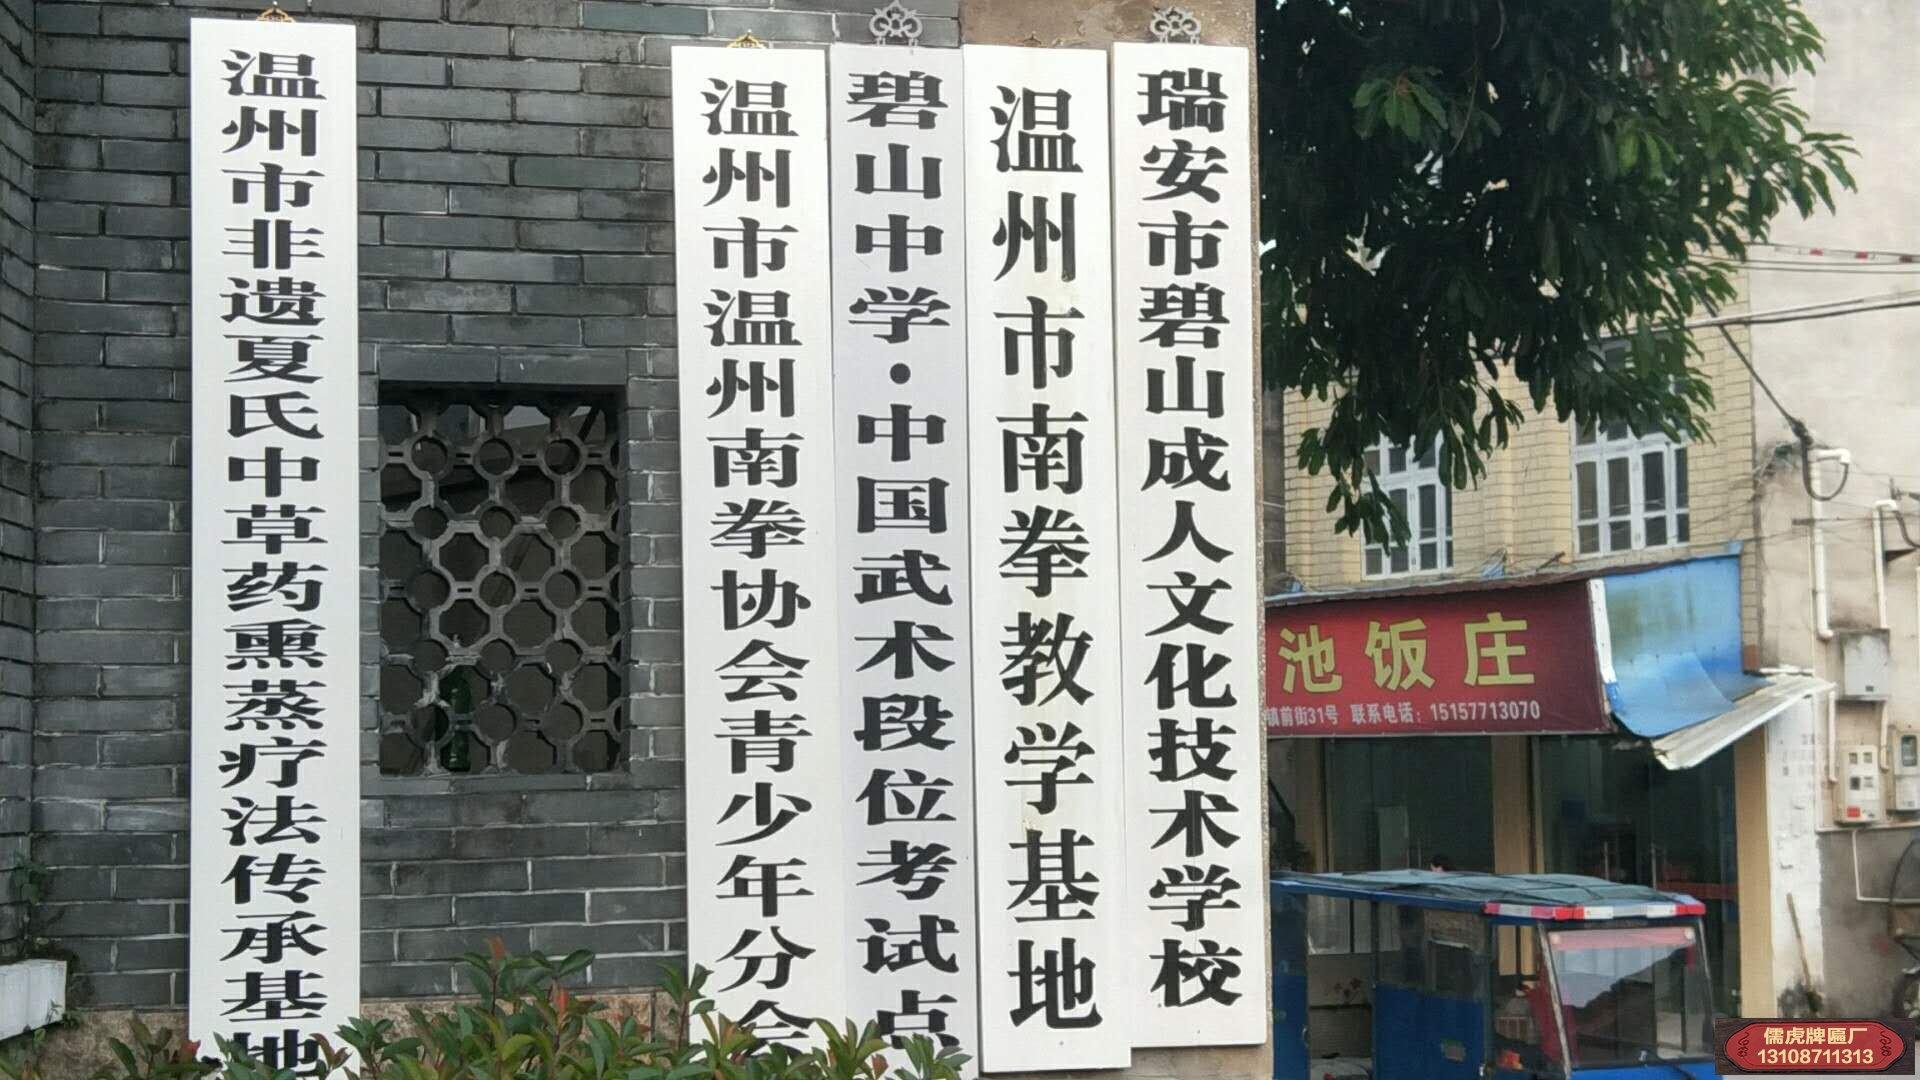 温州市非遗夏氏中草药熏蒸疗法传承基地
温州市温州南拳协会青少年分会
碧山中学·中国武术段位考试点
温州市南拳教学基地
瑞安市碧山成人文化技术学校
池饭庄
镇前街31号 联系电话：15157713070
儒虎牌匾厂
13108711313